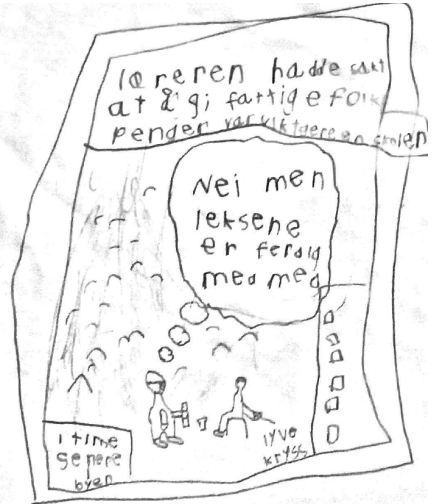 læreren hadde sakt
at å gi fattige folk
penger var viktigere en skolen
Nei men
leksene
er ferdig
med meg
1 time
senere
byen
lyve
kryss